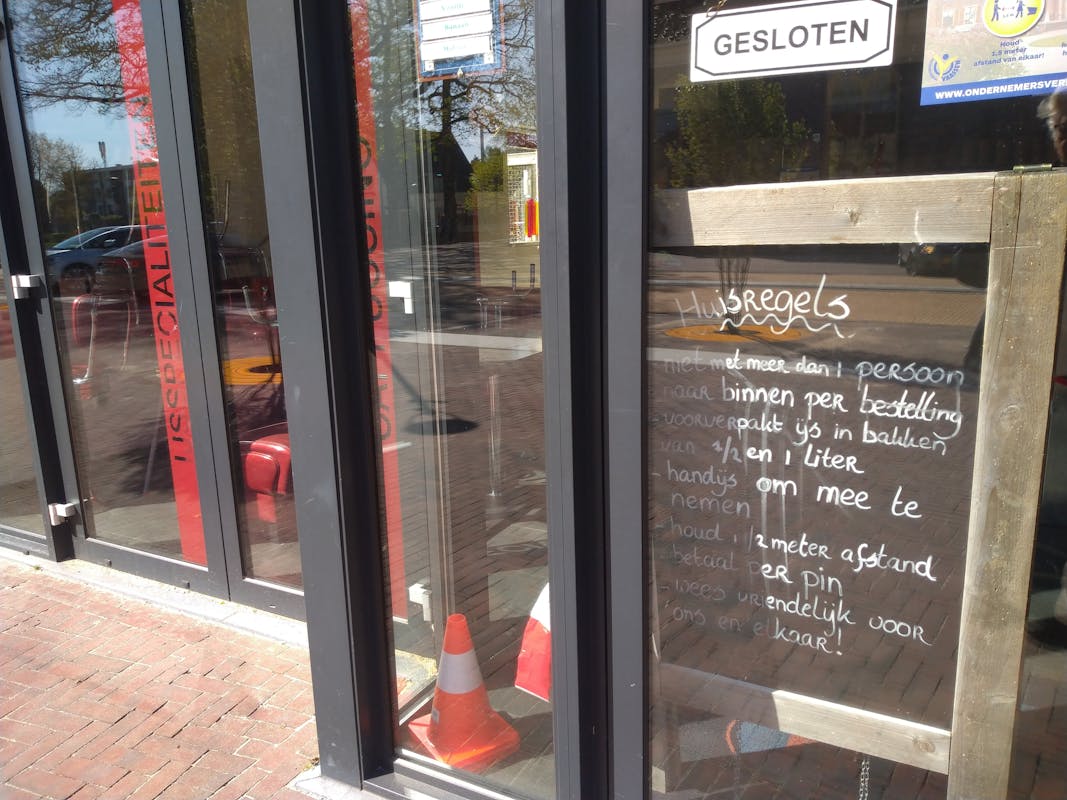 GESLOTEN
Houd
1,5 meter
afstand van elkaar!
VAASSEN
WWW.ONDERNEMERSVER
IJSSPECIALITEIT
Huisregels
niet met meer dan 1 persoon
naar binnen per bestelling
- voorverpakt ijs in bakken
van 1/2 en 1 liter
- handijs om mee te
nemen
- houd 1 1/2 meter afstand
- betaal per pin
- wees vriendelijk voor
ons en elkaar!